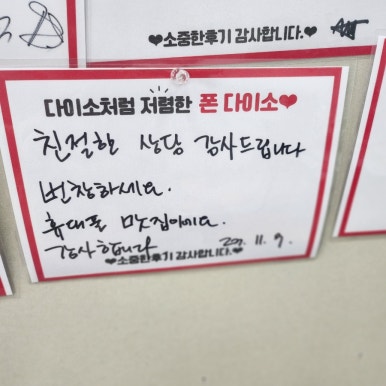 ♥소중한후기 감사합니다.♥
다이소처럼 저렴한 폰 다이소♥
친절한 상담 감사드립니다
번창하세요.
휴대폰 맛집이에요.
감사합니다
11. 9.
♥소중한후기 감사합니다.♥